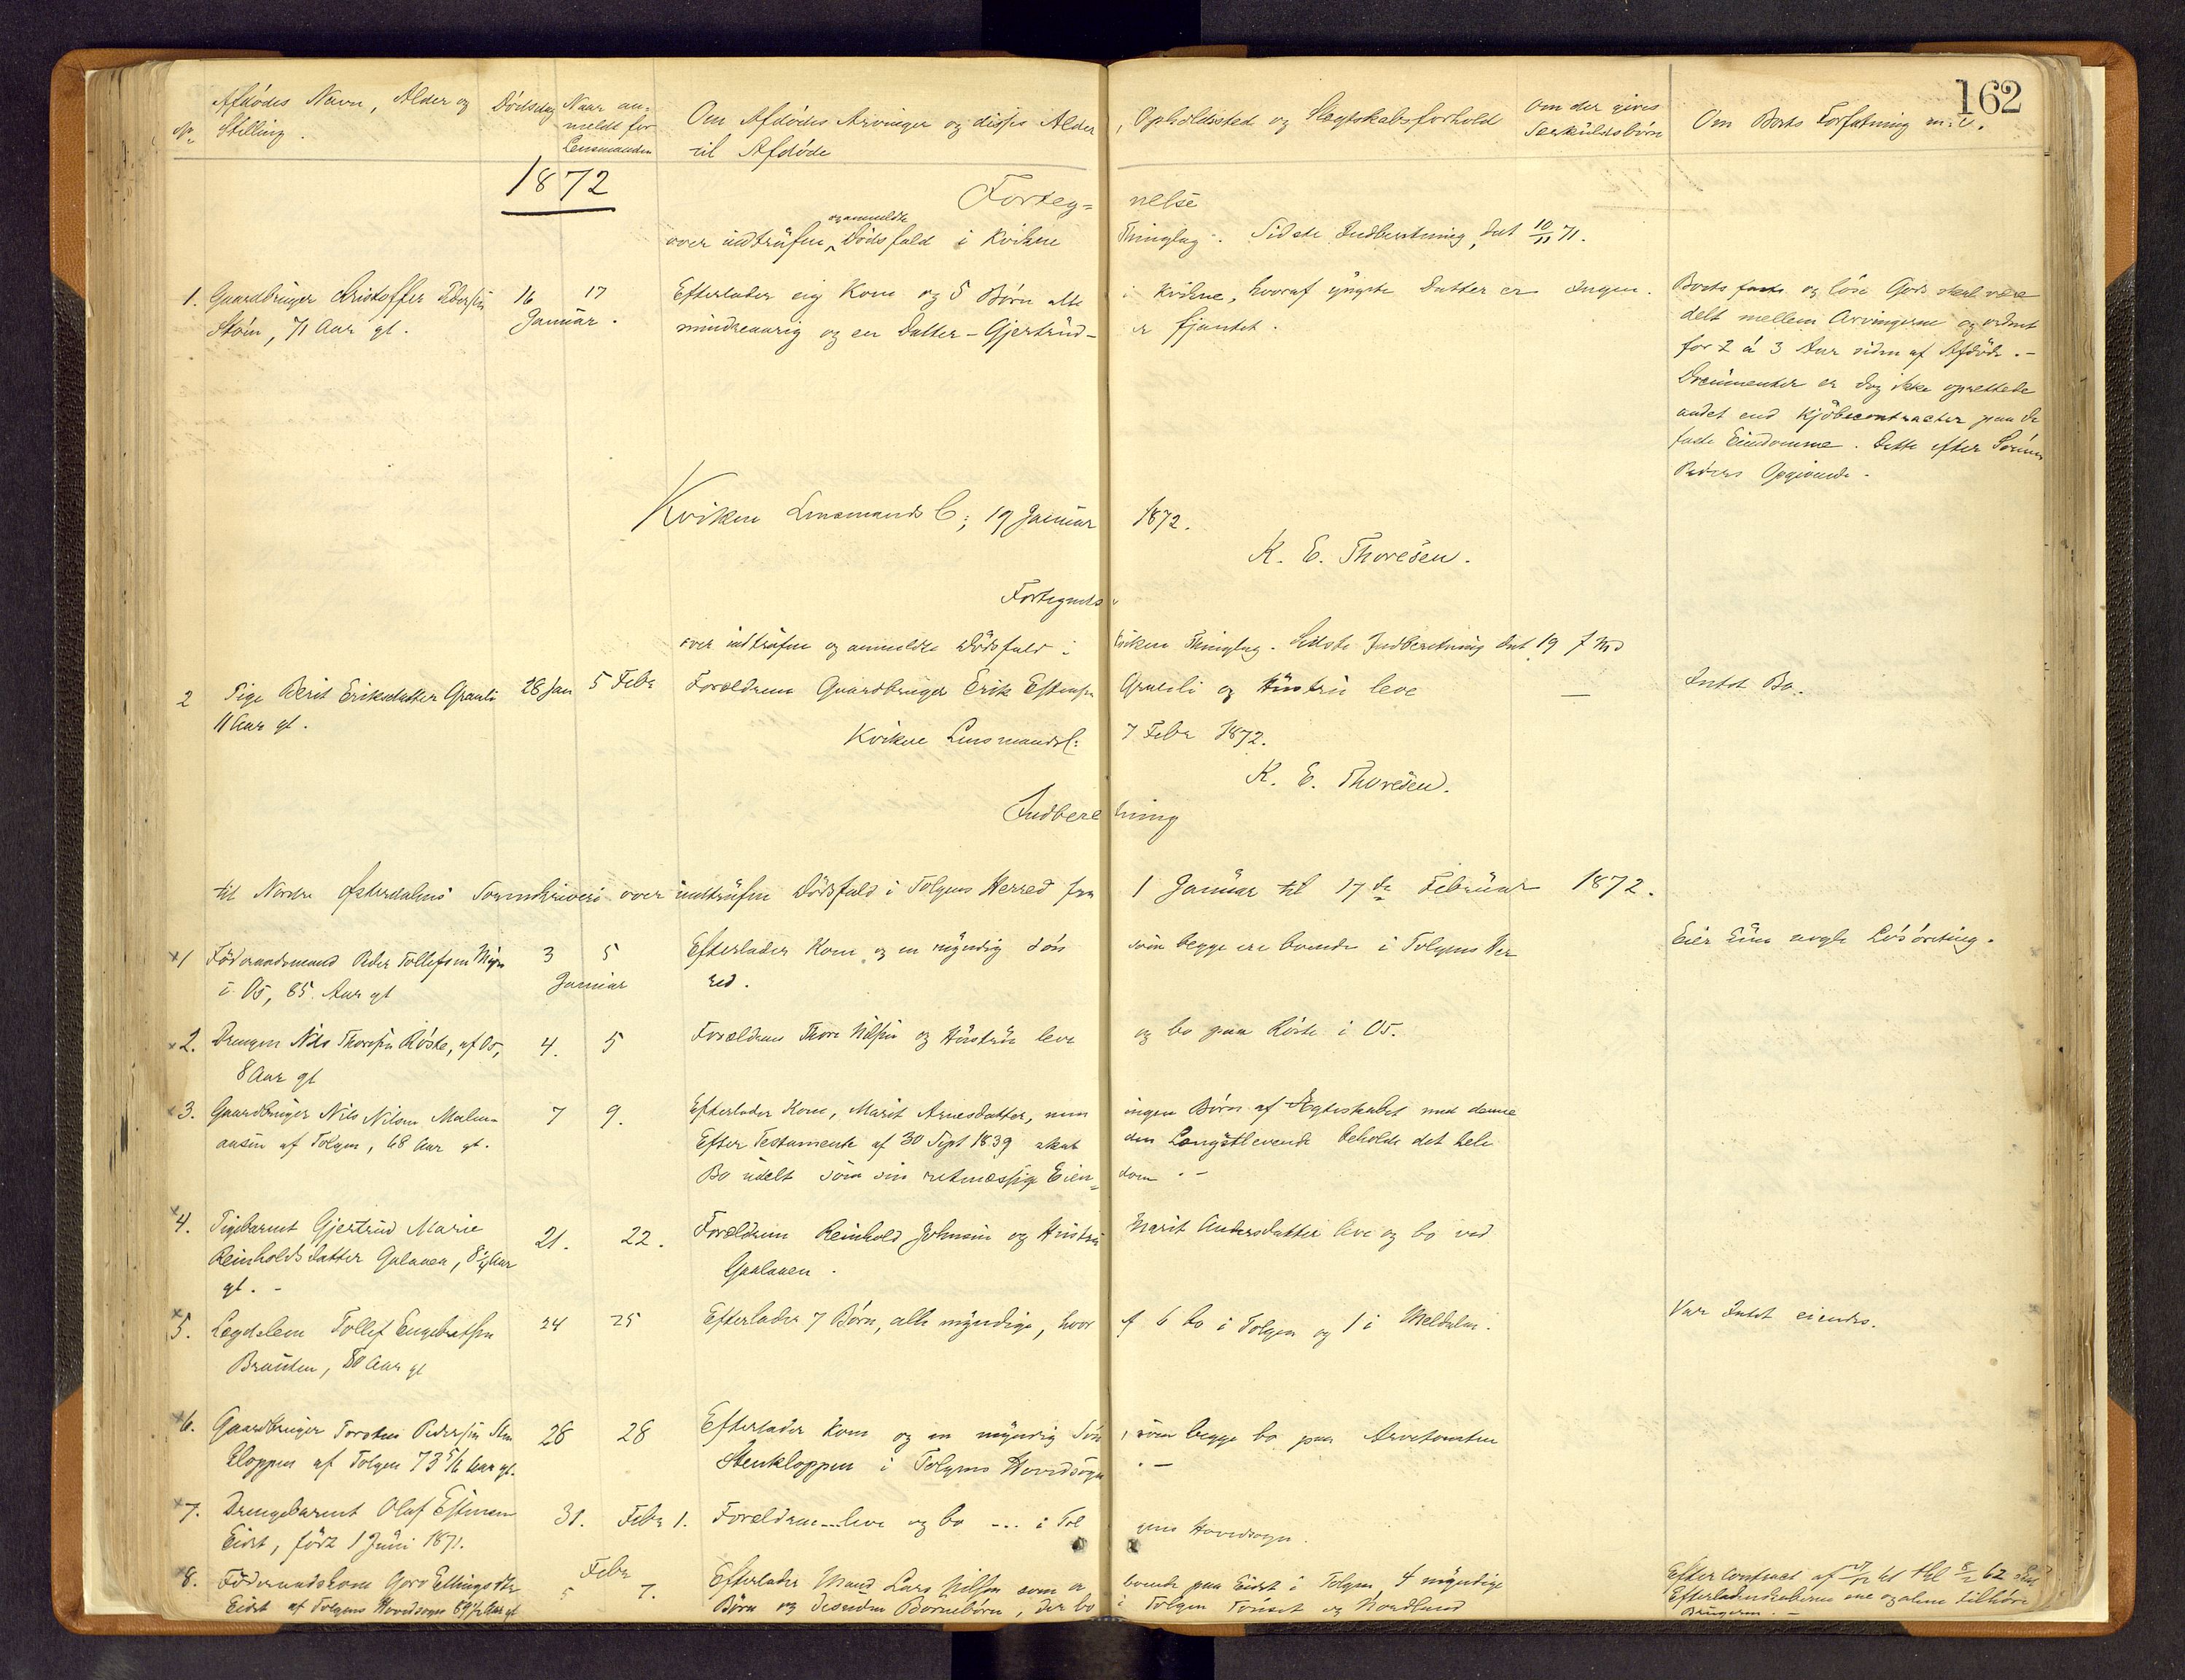 162
No Afdødes Navn, Alder og Stilling.
Dødsdag
Naar anmeldt for Lensmanden
Om Afdødes Arvinger og disses Alder, Opholdssted og Slægtskabsforhold
til Afdøde
Om der gives Særkuldsbørn
Om Boets Forfatning m.v.
1872
Forteg= nelse
over indtrufne og anmeldte Dødsfald i Kvikne Thinglag. Sidste Indberetning dat 10/11 71.
1. Gaardbruger Christoffer Pedersen
Støen, 71 Aar gl.
16 17
Januar.
Efterlader sig Kone og 5 Børn alle i Kvikne, hvoraf yngste Datter er
mindreaarig og en Datter - Gjertrud - er fjantet.
Ingen.
Boets faste og løse Gods skal være
delt mellem Arvingerne og ordnet
for 2 á 3 Aar siden af Afdøde. -
Documenter er dog ikke oprettede
andet end Kjøbecontracter paa de
faste Eiendomme. Dette efter Sønnen
Peders Opgivende.
Kvikne Lensmandsb; 19 Januar 1872.
K. E. Thoresen.
Fortegnelse
over indtrufne og anmeldte Dødsfald i Kvikne Thinglag. Sidste Indberetning dat 19 f Md
2 Pige Berit Eriksdatter Grauli
11 Aar gl.
28 Jan 5 Febr
Forældrene Gaardbruger Erik Estensen Grauli og Hustru leve
—
Intet Bo.
Kvikne Lensmandsb: 7 Febr 1872.
K. E. Thoresen.
Indberetning
til Nordre Østerdalens Sorenskriveri over indtrufne Dødsfald i Tolgens Herred fra 1 Januar til 17de Februar 1872.
x1 Føderaadsmand Peder Tollefsen
i Os, 85 Aar gl
3 5
Januar
Efterlader Kone og en myndig Søn som begge ere boende i Tolgens Her
red.
Eier kun nogle Løsøreting.
x2. Drengen Nils Thoresen Røste, af Os,
8 Aar gl
4. 5
Forældrene Thore Nilsen og Hustru leve og bo paa Røste i Os.
x3. Gaardbruger Nils Nilsen Malm-
aasen af Tolgen, 68 Aar gl.
7 9.
Efterlader Kone, Marit Arnesdatter, men ingen Børn af Ægteskabet med denne
Efter Testamente af 30 Sept 1839 skal den Længstlevende beholde det hele
Bo udelt som sin retmæssige Eien= dom. -
x4. Pigebarnet Gjertrud Marie
Reinholdsdatter Galaaen, 8 1/4 Aar
gl. -
21. 22.
Forældrene Reinhold Johnsen og Hustru Marit Andersdatter leve og bo ved
Gaalaaen.
x5. Lægdslem Tollef Engebretsen
Braaten, 80 Aar gl
24 25
Efterlader 7 Børn, alle myndige, hvor af 6 bo i Tolgen og 1 i Meldalen.
Var Intet eiendes.
x6. Gaardbruger Torsten Pedersen Sten
kloppen af Tolgen 73 5/6 Aar gl.
26 28
Efterlader Kone og en myndig Søn, som begge bo paa Arvetomten
Stenkloppen i Tolgens Hovedsogn. -
x7. Drengebarnet Olaf Estensen
Eidet, født 1 Juni 1871.
31. Febr 1.
Forældrene ... leve og bo ... i Tol gens Hovedsogn.
x8. Føderaadskone Goro Ellingsdtr
Eidet af Tolgens Hovedsogn 69 1/2 Aar gl
Febr
5 7.
Efterlader Mand Lars Nilsen som er boende paa Eidet i Tolgen, 4 myndige
Børn og desuden Børnebørn, der bo i Tolgen Tønset og Nordland
Efter Contract af
Efterladenskaberne ene og alene tilhøre
Brugeren. -